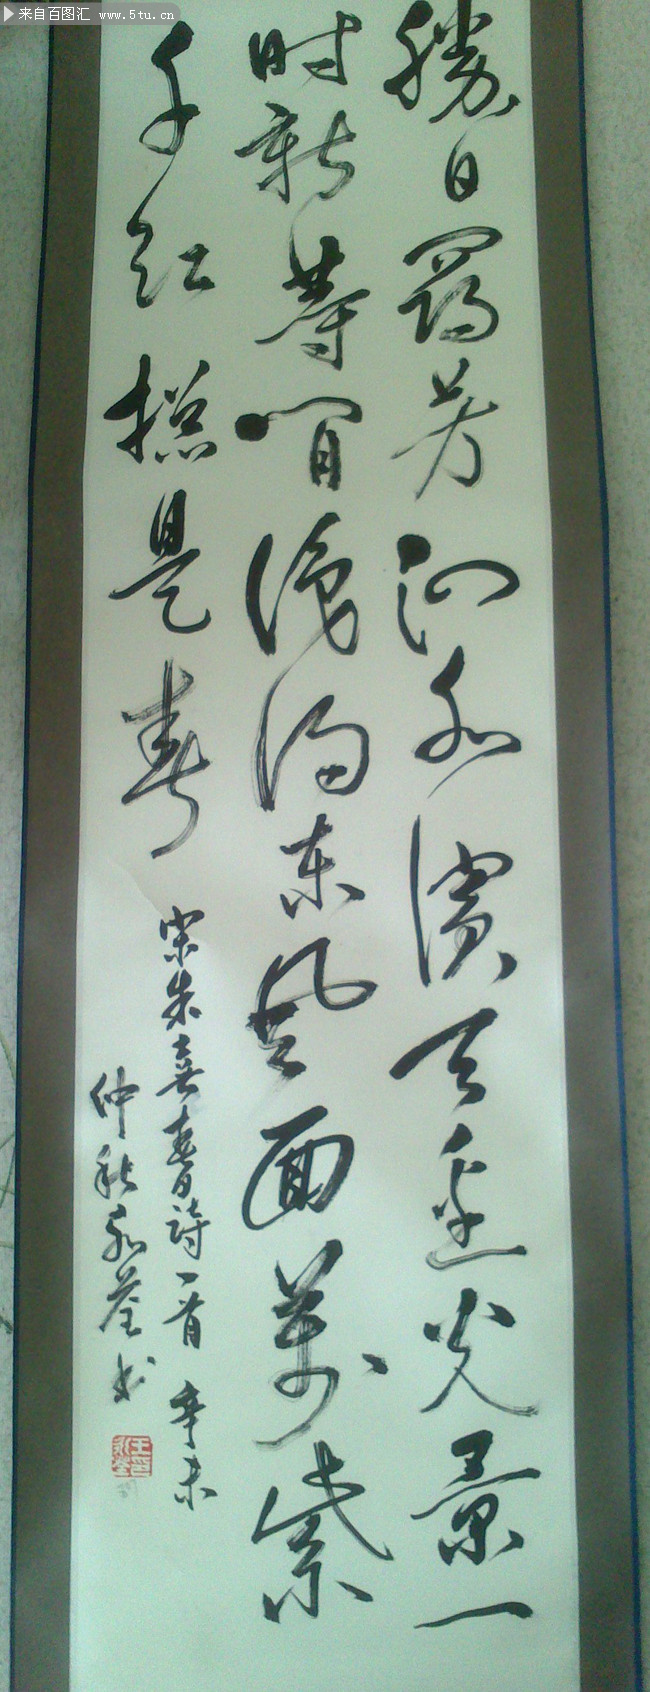 来自百图汇 www.5tu.cn
勝日寻芳泗水濱无边光景一
时新等閒識得东风面萬紫
千红摠是春
宋朱熹春日詩一首 辛未
仲秋永荃书